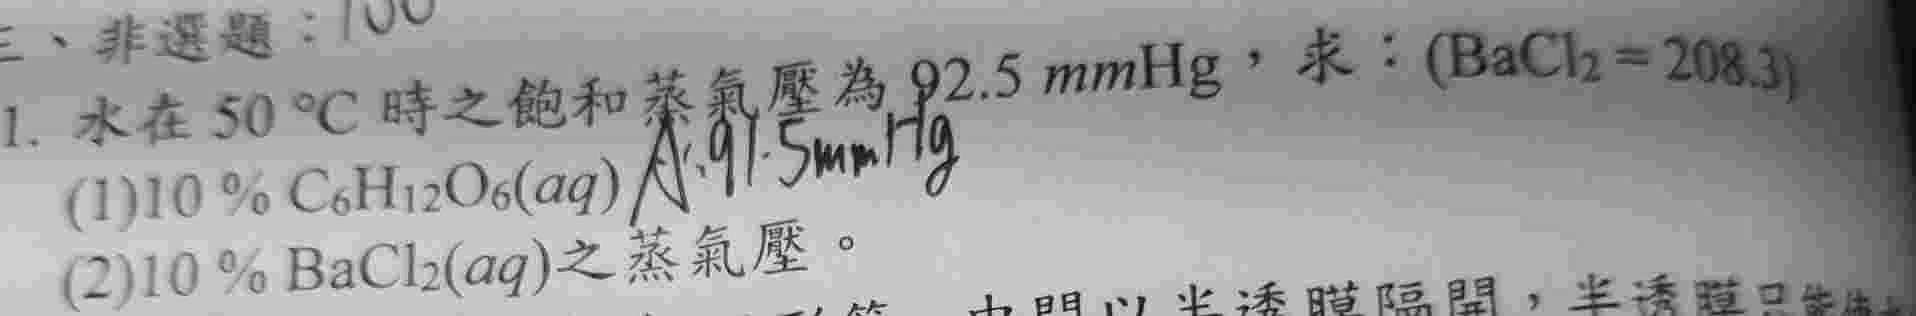 三、非選題：100
1. 水在 50 °C 時之飽和蒸氣壓為 92.5 mmHg，求：(BaCl₂ = 208.3)
(1)10 % C₆H₁₂O₆(aq) A:91.5mmHg
(2)10 % BaCl₂(aq)之蒸氣壓。
中間以半透膜隔開，半透膜只能使